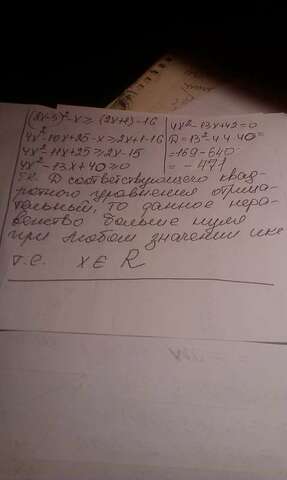 (2x-5)²-x ≥ (2x+1)-16
4x²-10x+25-x ≥ 2x+1-16
4x²-11x+25 ≥ 2x-15
4x²-13x+40 ≥ 0
4x²-13x+42=0
D=13²-4·4·40=
=169-640=
=-471
т.к. D соответствующего квад-
ратного уравнения отрица-
тельный, то данное нера-
венство больше нуля
при любом значении икс
т.е. x ∈ R